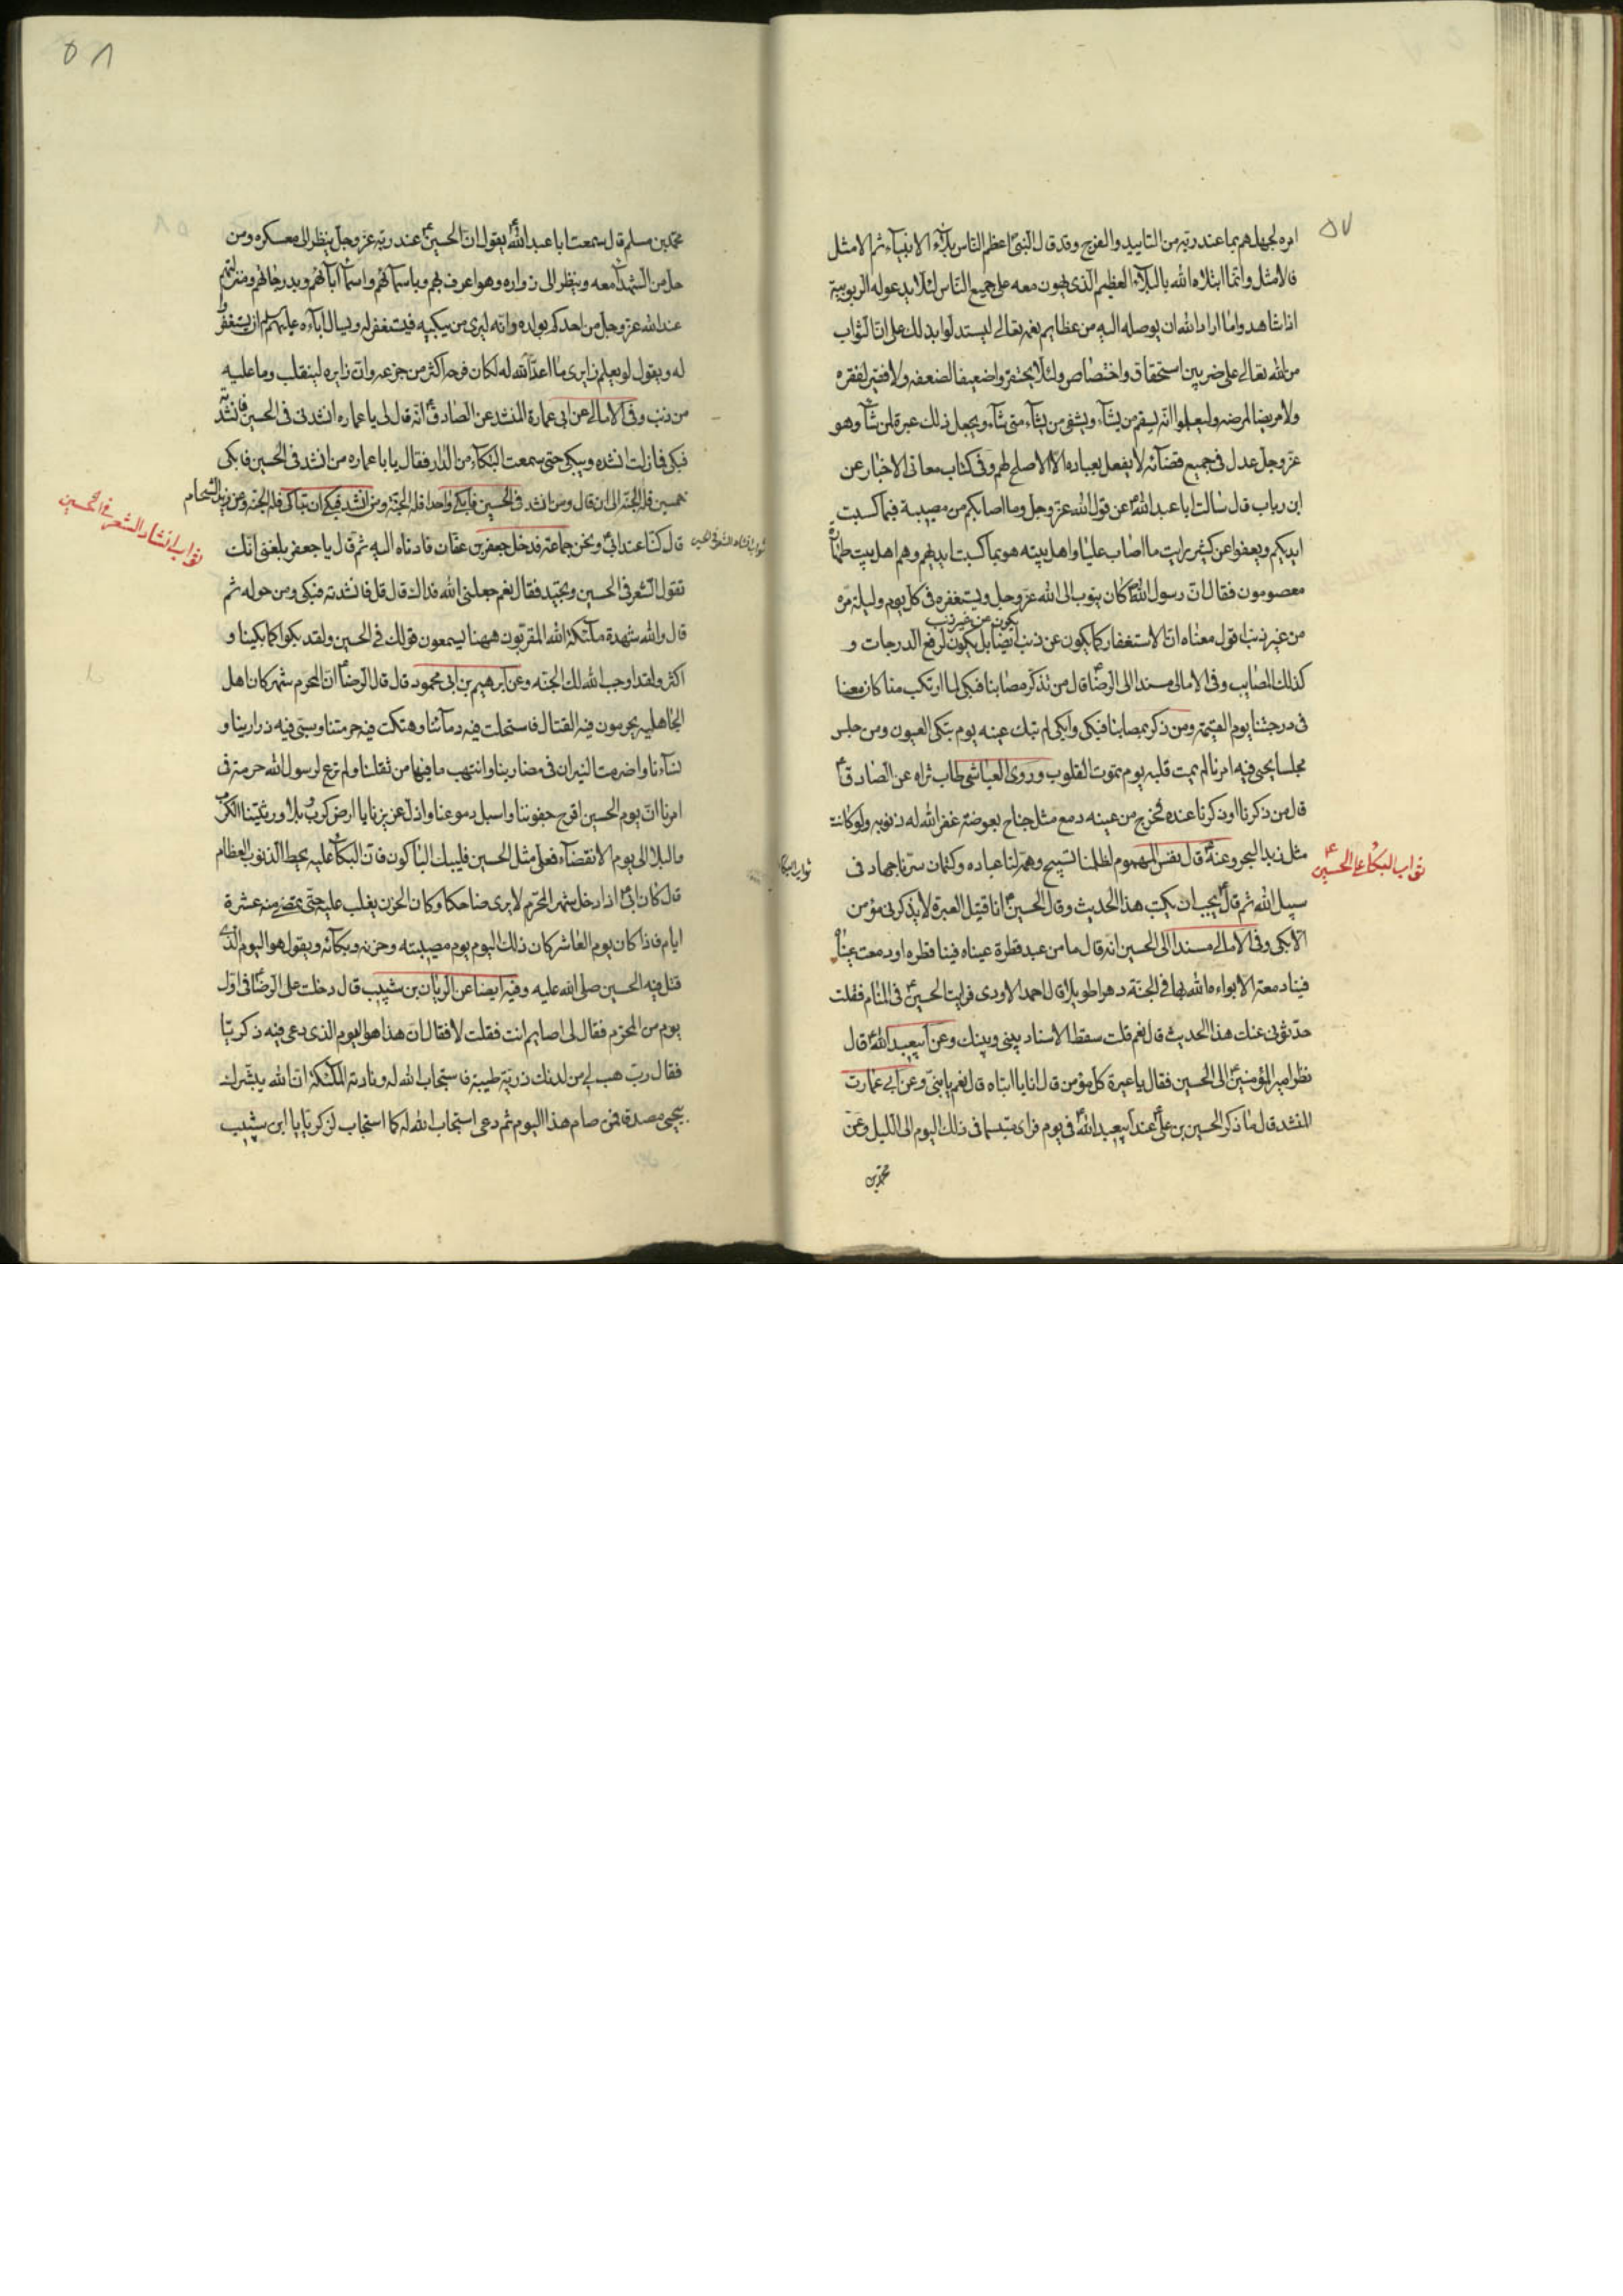 ٥٧
امره لجهلهم بما عند ربّه من التاييد والفرج وقد قال النبيّ اعظم الناس بلآء الانبيآء ثم الامثل
فالامثل وانّما ابتلاه الله بالبلآء العظيم الذى يهون معه على جميع الناس لئلا يدعوا له الربوبية
اذا شاهدوا ما اراد الله ان يوصله اليه من عظايم نعمه تعالى ليستدلوا بذلك على ان الثواب
من الله تعالى على ضربين استحقاق واختصاص ولئلا يحتقروا ضعيفا لضعفه ولا فقيرا لفقره
ولا مريضا لمرضه وليعلموا انّه يسقم من يشآء ويشفى من يشآء متى شآء ويجعل ذلك عبرة لمن شآء وهو
عزّ وجل عدل فى جميع قضآئه لا يفعل بعباده الّا الاصلح لهم وفى كتاب معانى الاخبار عن
ابن رياب قال سالت ابا عبد الله عن قول الله عزّ وجل وما اصابكم من مصيبة فبما كسبت
ايديكم ويعفوا عن كثير رايت ما اصاب عليا واهل بيته هو بما كسبت ايديهم وهم اهل بيت طهارة
معصومون فقال ان رسول الله كان يتوب الى الله عزّ وجل ويستغفره فى كل يوم وليلة مرّه
يكون من غير ذنب
من غير ذنب اقول معناه ان الاستغفار كما يكون عن ذنب ايضا بل يكون لرفع الدرجات و
كذلك المصايب وفى الامالى مسندا الى الرضا قال من تذكر مصابنا فبكى لما ارتكب منا كان معنا
فى درجتنا يوم القيمة ومن ذكر بمصابنا فبكى وابكى لم تبك عينه يوم تبكى العيون ومن جلس
مجلسا يحيى فيه امرنا لم يمت قلبه يوم تموت القلوب وروى العياشى طاب ثراه عن الصادق
قال من ذكرنا او ذكرنا عنده فخرج من عينه دمع مثل جناح بعوضة غفر الله له ذنوبه ولو كانت
مثل زبد البحر وعنه قال نفس المهموم لظلمنا تسبيح وهمّه لنا عباده وكتمان سرّنا جهاد فى
ثواب البكا على الحسين
سبيل الله ثم قال يجب ان يكتب هذا الحديث وقال الحسين انا قتيل العبرة لا يذكرنى مؤمن
الّا بكى وفى الامالى مسندا الى الحسين انه قال ما من عبد قطرة عيناه فينا قطره او دمعت عيناه
فينا دمعة الا بواءه الله بها فى الجنّة دهرا طويلا قال احمد الاودى فرايت الحسين فى المنام فقلت
حدّثونى عنك هذا الحديث قال نعم قلت سقط الاسناد بينى وبينك وعن ابيعبد الله قال
نظر امير المؤمنين الى الحسين فقال يا عبرة كل مؤمن قال انا يا ابتاه قال نعم يا بنىّ وعن ابى عمارت
المنشد قال ما ذكر الحسين بن على عند ابيعبد الله فى يوم فراى متبسما فى ذلك اليوم الى الليل وعن
محمد بن
٥٨
محمد بن مسلم قال سمعت ابا عبد الله يقول ان الحسين عند ربّه عزّ وجل ينظر الى معسكره ومن
حل من الشهدآ معه وينظر الى زواره وهو اعرف بهم وباسمآئهم واسمآ ابآئهم وبدرجاتهم ومنزلتهم
عند الله عزّ وجل من احدكم بولده وانه ليرى من يبكيه فيستغفر له ويسال اباءه عليهم السلام ان يستغفروا
له ويقول لو يعلم زايرى ما اعدّ الله له لكان فرحه اكثر من جزعه وان زايره لينقلب وما عليه
من ذنب وفى الامالى عن ابى عمارة المنشد عن الصادق انّه قال لى يا عماره انشدنى فى الحسين فانشدته
فبكى فما زلت انشده ويبكى حتى سمعت البكآء من الدار فقال يا با عماره من انشد فى الحسين فابكى
خمسين فله الجنّة الى ان قال ومن انشد فى الحسين فابكى واحدا فله الجنّة ومن انشد فبكى او تباكى فله الجنّة وعن زيد الشحام
ثواب انشاد الشعر فى الحسين
قال كنّا عند ابى ونحن جماعة فدخل جعفر بن عفان فادناه اليه ثم قال يا جعفر بلغنى انك
تقول الشعر فى الحسين وتجيّد فقال نعم جعلنى الله فداك قال قل فانشدته فبكى ومن حوله ثم
قال والله شهدة ملآئكة الله المقربون ههنا يسمعون قولك فى الحسين ولقد بكوا كما بكينا و
اكثر ولقد اوجب الله لك الجنّه وعن ابرهيم بن ابى محمود قال قال الرضا ان المحرم شهر كان اهل
الجاهليه يحرمون فيه القتال فاستحلت فيه دمآئنا وهتكت فيه حرمتنا وسبى فيه ذرارينا و
نسآءنا واضرمت النيران فى مضاربنا وانتهب ما فيها من ثقلنا ولم ترع لرسول الله حرمة فى
امرنا ان يوم الحسين اقرح جفوننا واسبل دموعنا واذلّ عزيزنا يا ارض كرب وبلا ورثتينا الكرب
والبلا الى يوم الانقضآء فعلى مثل الحسين فليبك الباكون فان البكآء عليه يحط الذنوب العظام
قال كان ابى اذا دخل شهر المحرّم لا يرى ضاحكا وكان الحزن يغلب عليه حتّى يمضى منه عشرة
ايام فاذا كان يوم العاشر كان ذلك اليوم يوم مصيبته وحزنه وبكآئه ويقول هو اليوم الذى
قتل فيه الحسين صلّى الله عليه وفيه ايضا عن الريان بن شبيب قال دخلت على الرضا فى اوّل
يوم من المحرّم فقال لى اصايم انت فقلت لا فقال ان هذا هو اليوم الذى دعى فيه زكريّا
فقال ربّ هب لى من لدنك ذريّة طيبة فاستجاب الله له ونادته الملئكة ان الله يبشّرك
بيحيى مصدقا فمن صام هذا اليوم ثم دعى استجاب الله له كما استجاب لزكريّا يا ابن شبيب